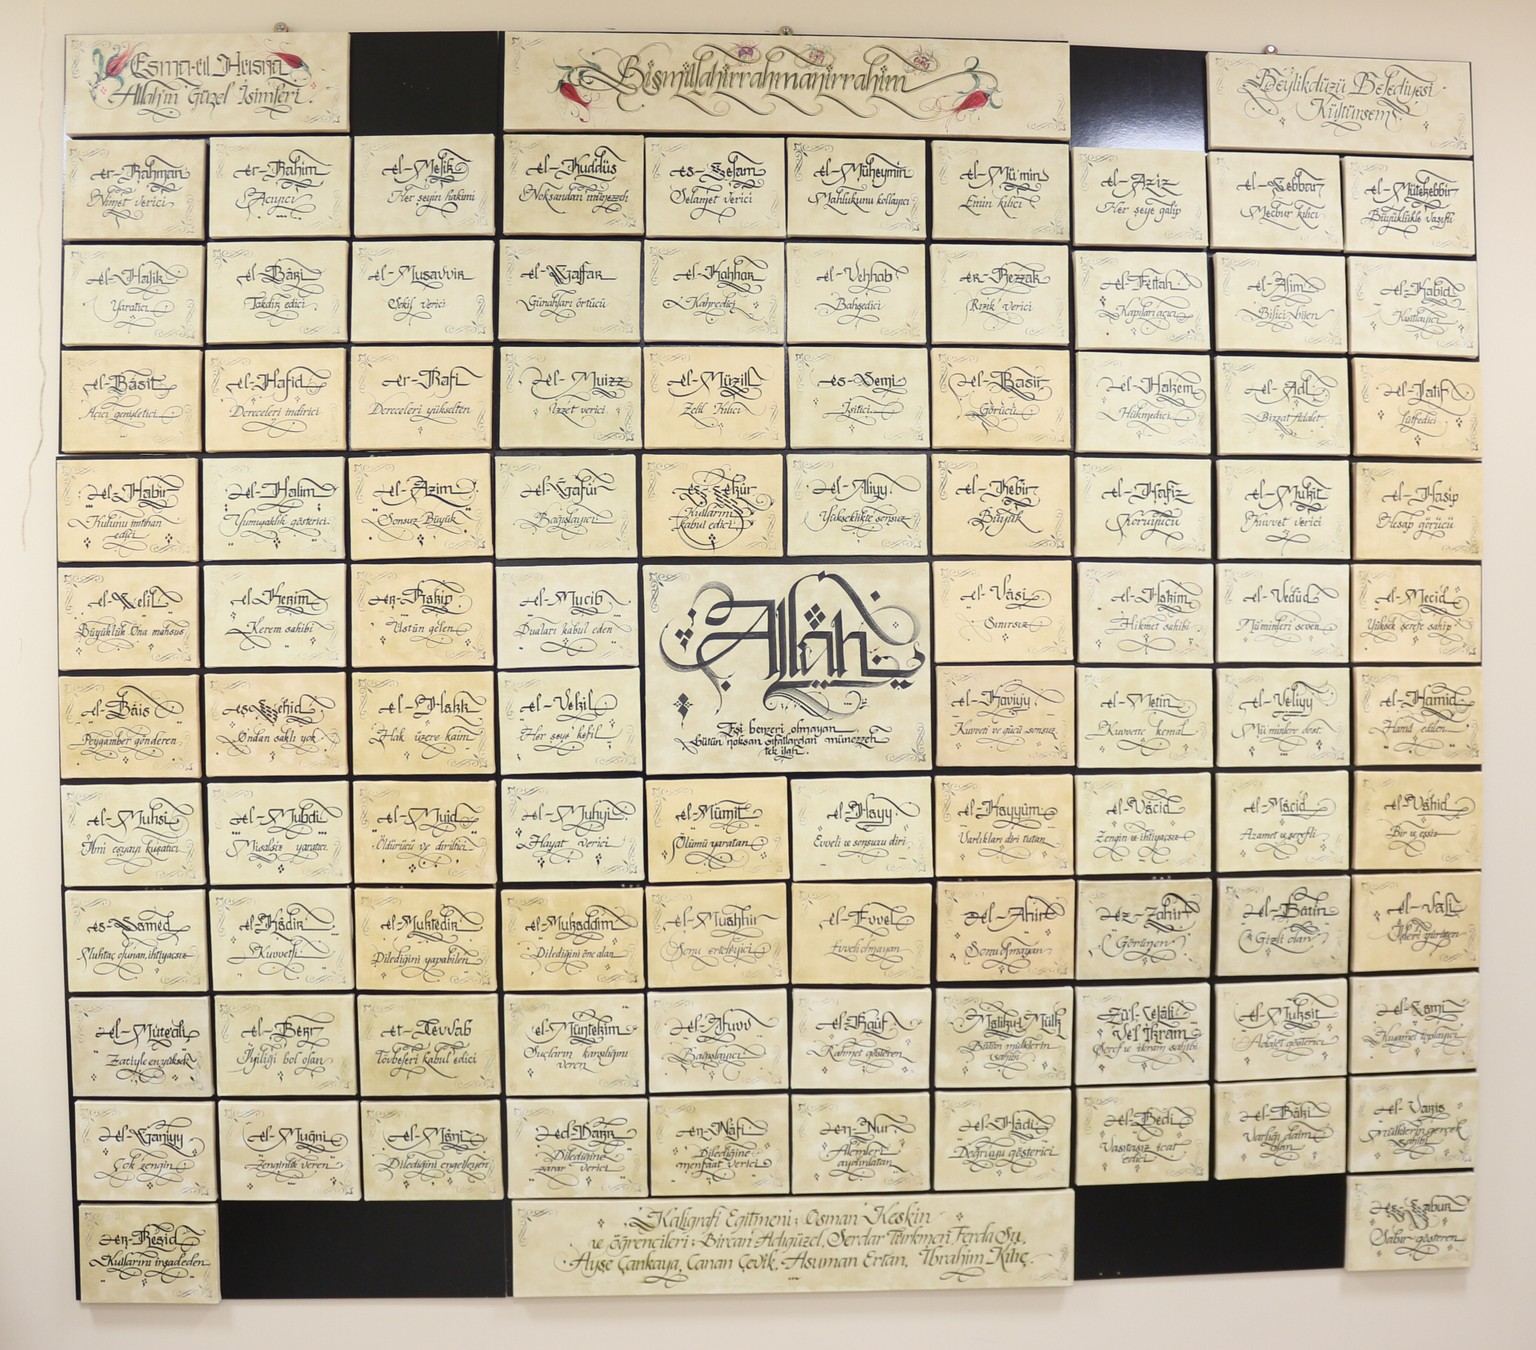 Esma-ül Hüsna
Allah'ın Güzel İsimleri.
Bismillahirrahmanirrahim
Beylikdüzü Belediyesi
Kültürsem
er-Rahman
Nimet verici
er-Rahim
Acıyıcı
el-Melik
Her şeyin hakimi
el-Kuddüs
Noksandan münezzeh
es-Selam
Selamet verici
el-Müheymin
Mahlukunu kollayıcı
el-Mü'min
Emin kılıcı
el-Aziz
Her şeye galip
el-Cebbar
Mecbur kılıcı
el-Mütekebbir
Büyüklükle vasıflı
el-Halik
Yaratıcı
el-Bâri
Takdir edici
el-Musavvir
Şekil verici
el-Gaffar
Günahları örtücü
el-Kahhar
Kahredici
el-Vehhab
Bahşedici
er-Rezzak
Rızık verici
el-Fettah
Kapıları açıcı
el-Alim
Bilici bilen
el-Kabid
Kısıtlayıcı
el-Bâsit
Açıcı genişletici
el-Hafid
Dereceleri indirici
er-Rafi
Dereceleri yükselten
el-Muizz
İzzet verici
el-Müzill
Zelil Kılıcı
es-Semi
İşitici
el-Basir
Görücü
el-Hakem
Hükmedici
el-Adl
Bizzat Adalet
el-Latif
Lütfedici
el-Habir
Kulunu imtihan
edici
el-Halim
Yumuşaklık gösterici
el-Azim
Sonsuz Büyük
el-Gafur
Bağışlayıcı
eş-Şekûr
Kulların
kabul edici
el-Aliyy
Yükseklikte sonsuz
el-Kebir
Büyük
el-Hafiz
Koruyucu
el-Mukit
Kuvvet verici
el-Hasip
Hesap görücü
el-Celil
Büyüklük Ona mahsus
el-Kerim
Kerem sahibi
er-Rakip
Üstün gelen
el-Mucib
Duaları kabul eden
Allah
Eşi benzeri olmayan
Bütün noksan sıfatlardan münezzeh
tek ilah.
el-Vâsi
Sınırsız
el-Hakim
Hikmet sahibi
el-Vedûd
Müminleri seven
el-Mecid
Yüksek şerefe sahip
el-Bâis
Peygamber gönderen
eş-Şehid
Ondan saklı yok
el-Hakk
Hak üzere kaim
el-Vekil
Her şeye kefil
el-Kaviyy
Kuvveti ve gücü sonsuz
el-Metin
Kuvvette kemal
el-Veliyy
Müminlere dost
el-Hamid
Hamd edilen
el-Muhsi
İlmi eşyayı kuşatıcı
el-Mubdi
Misalsiz yaratıcı
el-Muid
Öldürücü ve diriltici
el-Muhyi
Hayat verici
el-Mümit
Ölümü yaratan
el-Hayy
Evveli ve sonsuzu diri
el-Kayyüm
Varlıkları diri tutan
el-Vâcid
Zengin ve ihtiyaçsız
el-Mâcid
Azamet ve şerefli
el-Vâhid
Bir ve eşsiz
es-Samed
Muhtaç olunan, ihtiyaçsız
el-Kâdir
Kuvvetli
el-Muktedir
Dilediğini yapabilen
el-Mukaddim
Dilediğini öne alan
el-Muahhir
Sonu erteleyici
el-Evvel
Evveli olmayan
el-Ahir
Sonu olmayan
ez-Zahir
Görünen
el-Batın
Gizli olan
el-Vali
el-Müteâli
Zatiyle en yüksek
el-Berr
İyiliği bol olan
et-Tevvab
Tövbeleri kabul edici
el-Müntekim
Suçların karşılığını
veren
el-Afuvv
Bağışlayıcı
el-Raûf
Rahmet gösteren
Malikül-Mülk
Bütün mülklerin
sahibi
Zül-Celâli
Vel İkram
Şeref ve ikram sahibi
el-Muksit
Adalet gösterici
el-Cami
Kıyamet toplayıcı
el-Ganiyy
Çok zengin
el-Muğni
Zenginlik veren
el-Mâni
Dilediğini engelleyen
ed-Darr
Dilediğine
zarar verici
en-Nâfi
Dilediğine
menfaat verici
en-Nur
Alemleri
aydınlatan
el-Hâdi
Doğruyu gösterici
el-Bedi
Vasıtasız icat
edici
el-Bâki
Varlığı daim
olan
el-Varis
Mülklerin gerçek
sahibi
er-Reşid
Kullarını irşad eden
Kaligrafi Eğitmeni: Osman Keskin
ve öğrencileri: Bircan Adıgüzel, Serdar Türkmen, Ferda Su,
Ayşe Çankaya, Canan Çevik, Asuman Ertan, İbrahim Kılıç.
es-Sabur
Sabır gösteren